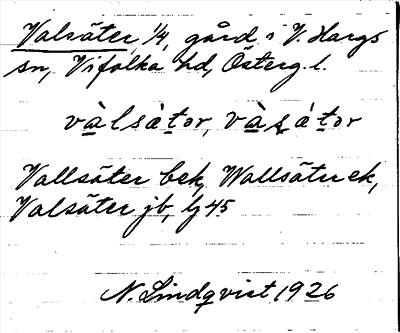 Valsäter, 1/4, gård i V. Hargs
sn, Vifolka hd, Österg. l.
vàlsàtər, vàsátər
Vallsäter bek, Wallsäter ek,
Valsäter jb, lj 45
N. Lindqvist 1926